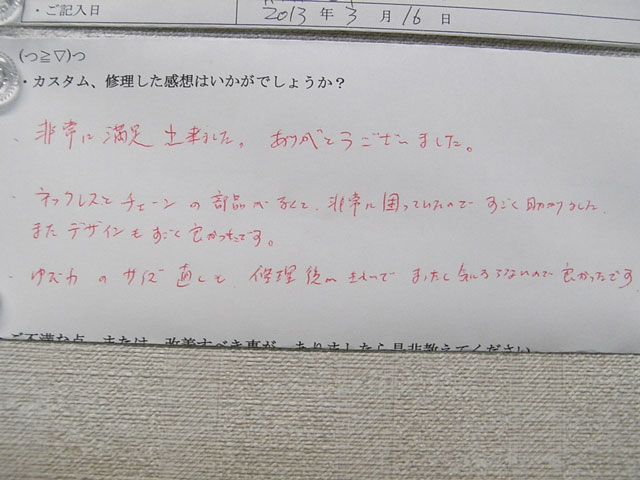 ・ご記入日 2013 年 3 月 16 日
(つ≧▽)つ
・カスタム、修理した感想はいかがでしょうか？
・非常に満足出来ました。ありがとうございました。
・ネックレスとチェーンの部品がなくて、非常に困っていたのですごく助かりました。
またデザインもすごく良かったです。
・ゆびわのサイズ直しも、修理後がきれいでまったく気にならないので良かったです
ご不満な点、または、改善すべき事が、ありましたら是非教えてください